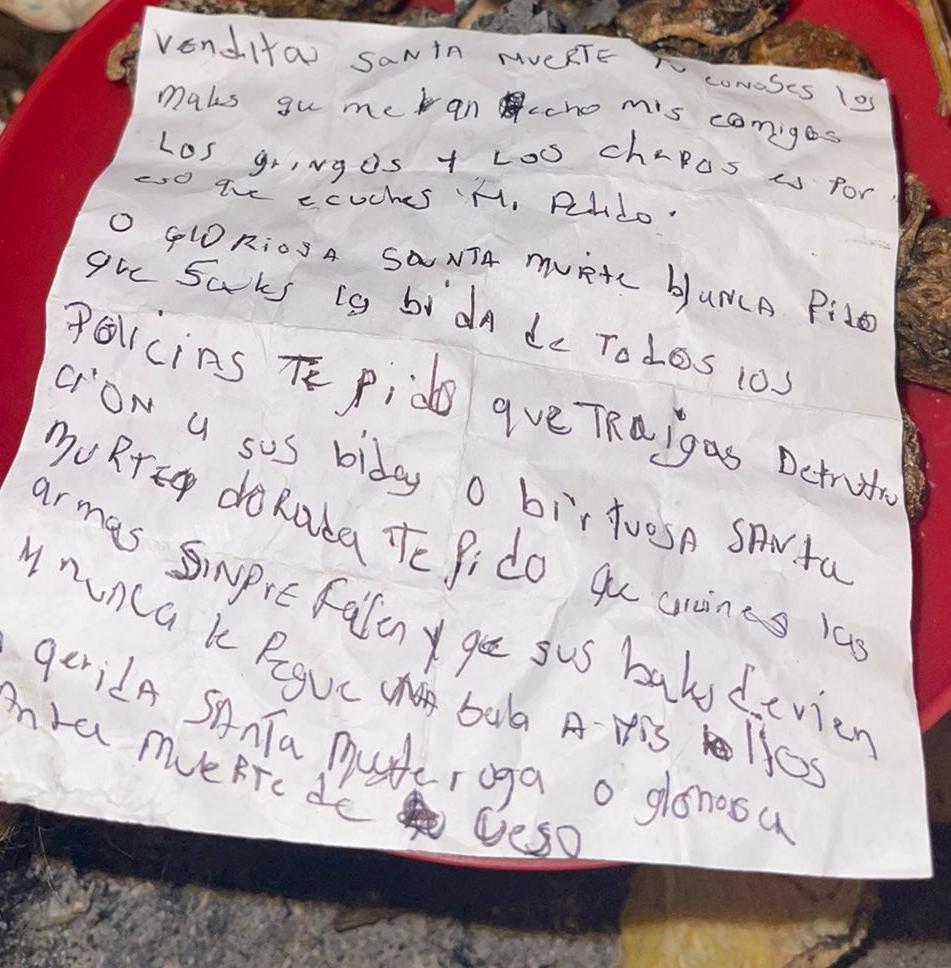 vendita SANTA MUERTE tu conoses los
males qu me han hecho mis comigos
Los gringos y Los chapas es Por
eso que ecuches Mi Pedido.
O glORiosA SANTA muirte blANCA Pido
que Sakes la bidA de TODOS lOS
POliCiAS TE pido que TRAigas Detrutru
ciON a sus bidas O birtuosA SANta
MURTE dORada TE Pido qu aruines las
armas SINPrE fallen y qe sus balas devien
y nunca le Pegue UNA bala A-MIS hijos
O qeridA SANTA Muerte roga o gloriosa
Anta MUERTE de ueso